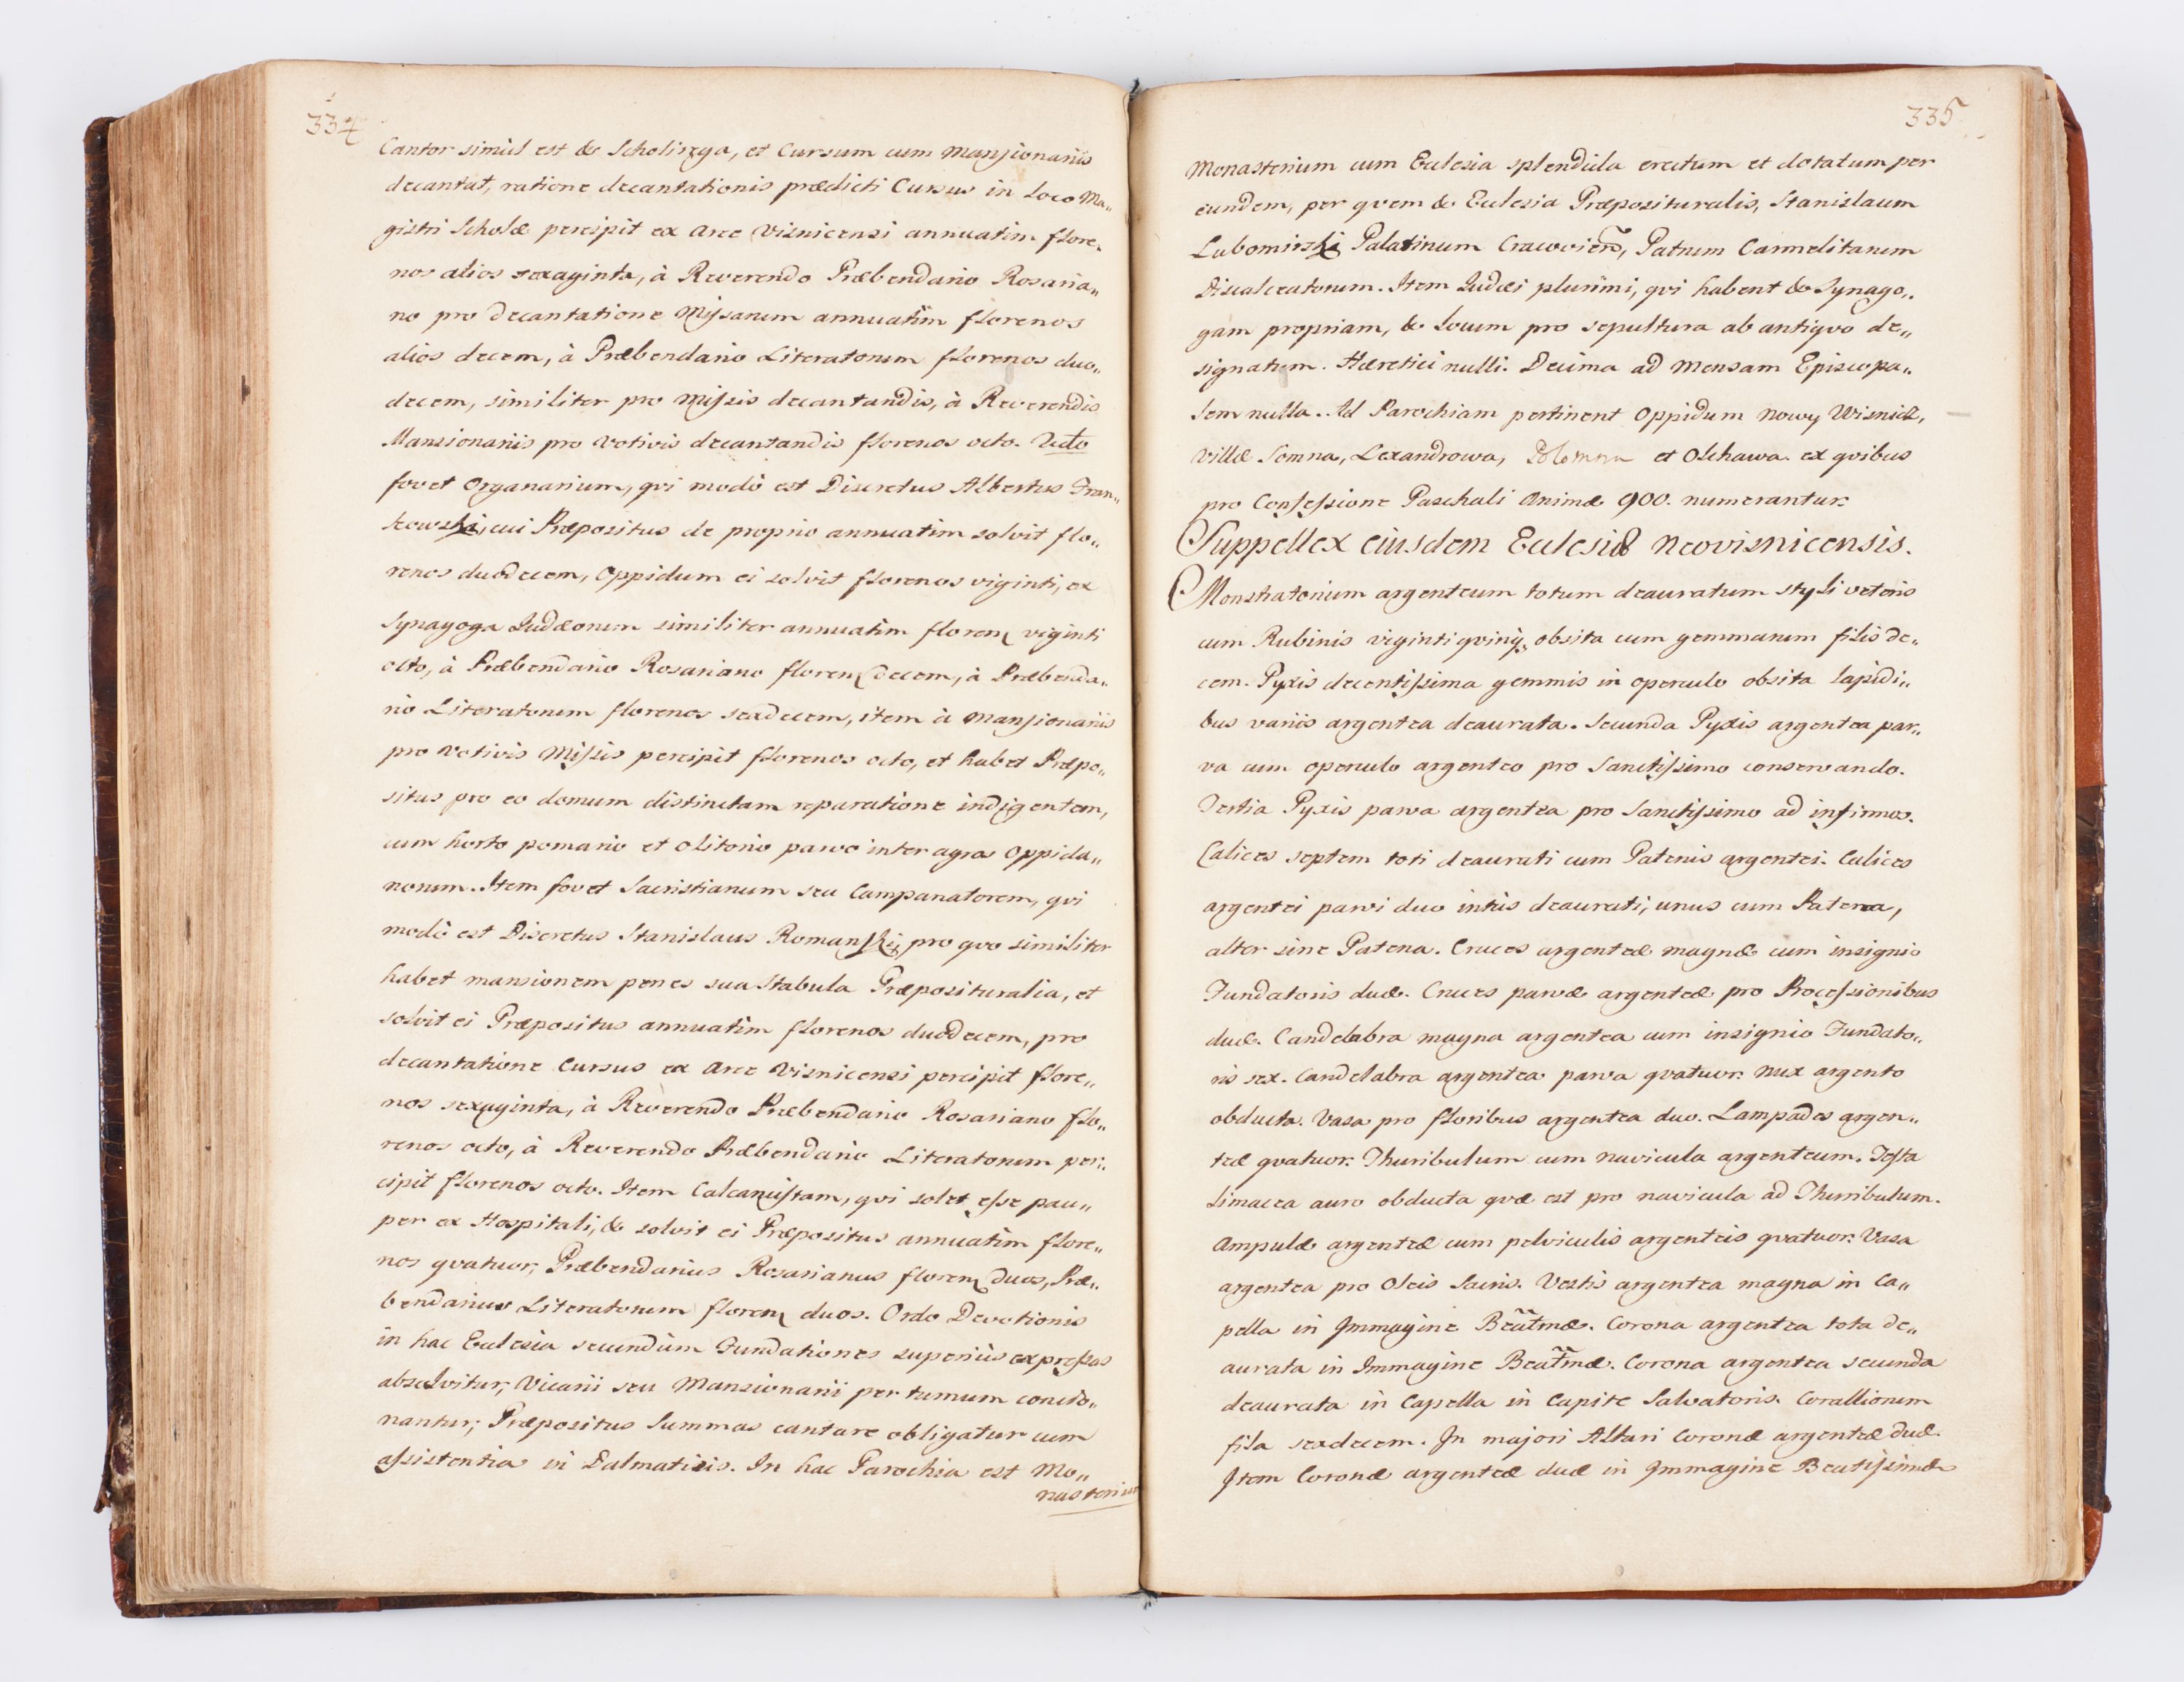 334
Cantor simul est & Scholirega, et Cursum cum Mansionariis
decantat, ratione decantationis prædicti Cursus in loco Ma„
gistri Scholæ percipit ex Arce Visnicensi annuatim flore„
nos alios sexaginta, à Reverendo Præbendario Rosaria„
no pro decantatione Missarum annuatim florenos
alios decem, à Præbendario Literatorum florenos duo„
decem, similiter pro Missis decantandis, à Reverendis
Mansionariis pro Votivis decantandis florenos octo.
fovet Organarium, qvi modò est Discretus Albertus Fran„
kowski, cui Præpositus de proprio annuatim solvit flo„
renos duodecem, Oppidum ei solvit florenos viginti, ex
Synagoga Judæorum similiter annuatim floren viginti
octo, à Præbendario Rosariano floren decem, à Præbenda„
rio Literatorum florenos sexdecem, item à Mansionariis
pro Votivis Missis percipit florenos octo, et habet Præpo„
situs pro eo domum distinctam reparatione indigentem,
cum horto pomario et olitorio parvo inter agros Oppida„
norum. Item fovet Sacristianum seu Campanatorem, qvi
modò est Discretus Stanislaus Romanski, pro qvo similiter
habet mansionem penes sua Stabula Præposituralia, et
solvit ei Præpositus annuatim florenos duodecem, pro
decantatione Cursus ex Arce Visnicensi percipit flore„
nos sexaginta, à Reverendo Præbendario Rosariano flo„
renos octo, à Reverendo Præbendario Literatorum per„
cipit florenos octo. Item Calcanistam, qvi solet esse pau„
per ex Hospitali, & solvit ei Præpositus annuatim flore„
nos qvatuor, Præbendarius Rosarianus floren duos, Præ„
bendarius Literatorum floren duos. Ordo Devotionis
in hac Ecclesia secundùm Fundationes superiùs expressas
absolvitur, Vicarii seu Mansionarii per turnum concio„
nantur, Præpositus Summas cantare obligatur cum
assistentia in Dalmaticis. In hac Parochia est Mo„
nasterium
335
Monasterium cum Ecclesia splendida erectum et dotatum per
eundem, per qvem & Ecclesia Præposituralis, Stanislaum
Lubomirski Palatinum Cracovien, Patrum Carmelitarum
Discalceatorum. Item Judæi plurimi, qvi habent & Synago„
gam propriam, & locum pro sepultura ab antiqvo de„
signatum. Hæretici nulli. Decima ad Mensam Episcopa„
lem nulla. Ad Parochiam pertinent Oppidum Nowy Wisnicz,
Villæ Lomna, Lexandrowa, et Olchawa. ex qvibus
pro Confessione Paschali Animæ 900. numerantur.
Suppellex eiusdem Ecclesiæ Neovisnicensis.
Monstratorium argenteum totum deauratum styli veteris
cum Rubinis viginti qvinq; obsita cum gemmarum filis de„
cem. Pyxis decentissima gemmis in operculo obsita lapidi„
bus variis argentea deaurata. Secunda Pyxis argentea par„
va cum operculo argenteo pro Sanctissimo conservando.
Tertia Pyxis parva argentea pro Sanctissimo ad infirmos.
Calices septem toti deaurati cum Patenis argentei. Calices
argentei parvi duo intùs deaurati, unus cum Patena,
alter sine Patena. Cruces argenteæ magnæ cum insignio
Fundatoris duæ. Cruces parvæ argenteæ pro Processionibus
duæ. Candelabra magna argentea cum insignio Fundato„
ris sex. Candelabra argentea parva qvatuor. Nux argento
obducta. Vasa pro floribus argentea duo. Lampades argen„
teæ qvatuor. Thuribulum cum navicula argenteum. Testa
limacea auro obducta qvæ est pro navicula ad Thurribulum.
Ampulæ argenteæ cum pelviculis argenteis qvatuor. Vasa
argentea pro Oleis Sacris. Vestis argentea magna in Ca„
pella in Immagine Beatmæ. Corona argentea tota de„
aurata in Immagine Beatmæ. Corona argentea secunda
deaurata in Capella in Capite Salvatoris. Corallionum
fila sexdecem. In majori Altari Coronæ argenteæ duæ.
Item Coronæ argenteæ duæ in Immagine Beatissimæ